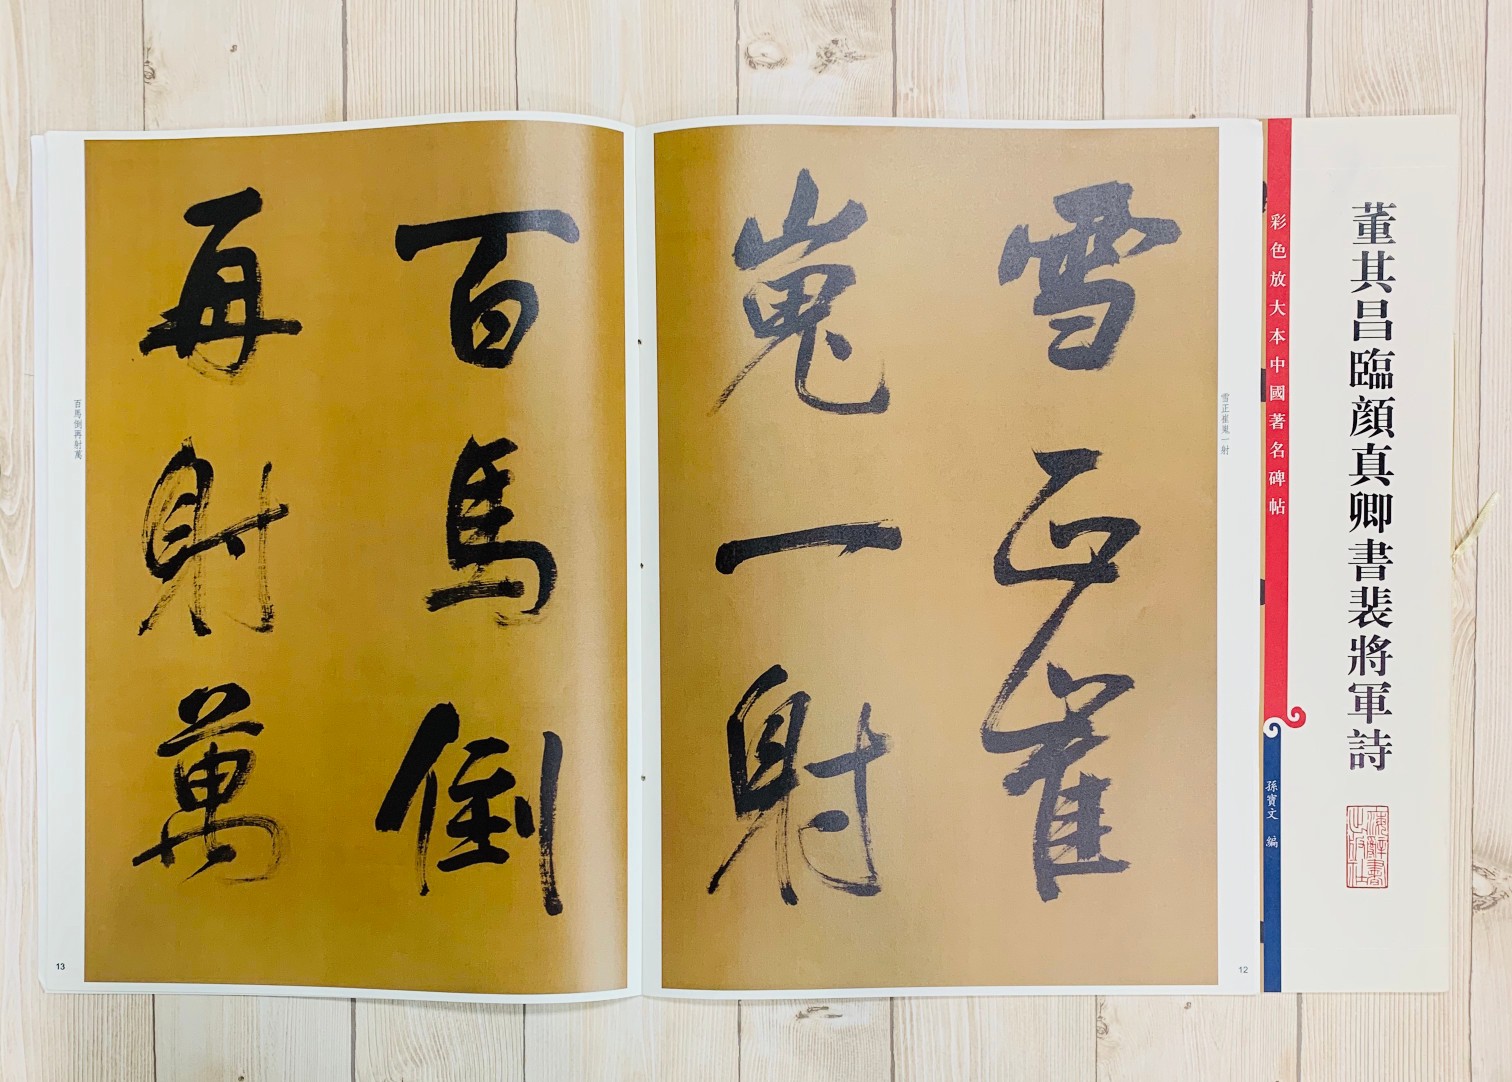 董其昌臨顔真卿書裴將軍詩
彩色放大本中國著名碑帖
孫寶文 編
雪正崔嵬一射
雪正崔
嵬一射
12
百馬倒
再射萬
百馬倒再射萬
13